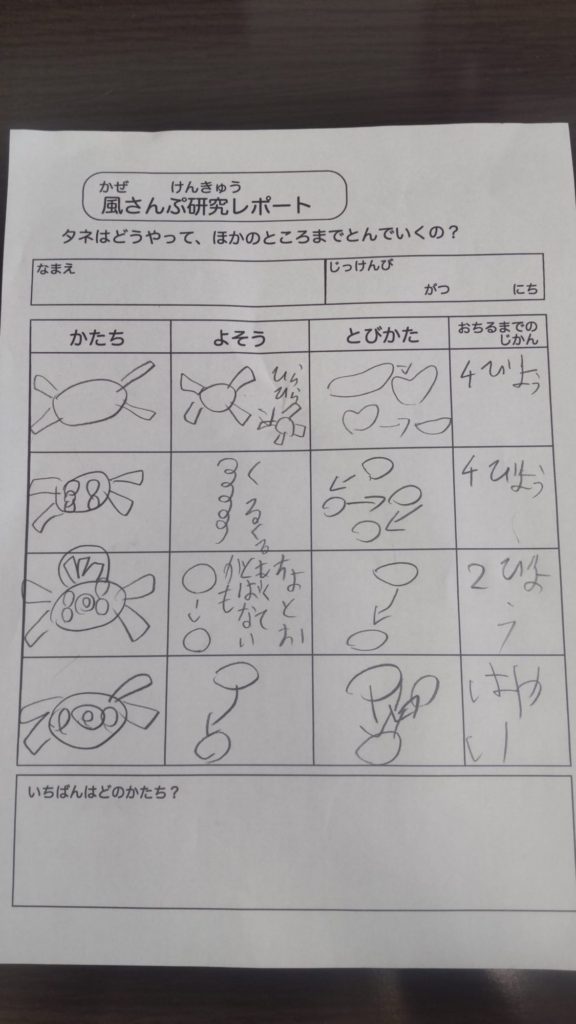 かぜ けんきゅう
風さんぽ研究レポート
タネはどうやって、ほかのところまでとんでいくの？
なまえ
じっけんび
がつ にち
かたち よそう とびかた おちるまでの じかん
ひら
ひら
4びょう
くるくる
4びょう
ちょとお
もくて
とばない
かも
2びょう
はやい
いちばんはどのかたち？